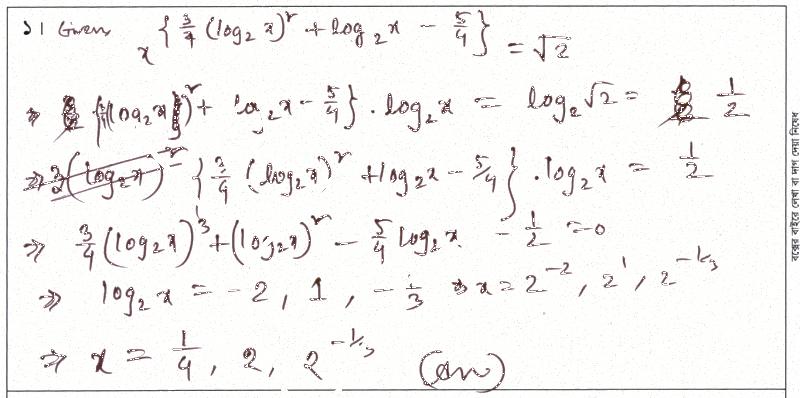 ১। Given x^{3/4 (log₂x)² + log₂x - 5/4} = √2
⇒ {(log₂x)² + log₂x - 5/4} . log₂x = log₂√2 = 1/2
⇒ {3/4 (log₂x)² + log₂x - 5/4} . log₂x = 1/2
⇒ 3/4 (log₂x)³ + (log₂x)² - 5/4 log₂x - 1/2 = 0
⇒ log₂x = -2, 1, -1/3 ⇒ x = 2⁻², 2¹, 2^{-1/3}
⇒ x = 1/4, 2, 2^{-1/3} (Ans)
বক্সের বাইরে লেখা বা দাগ দেয়া নিষেধ